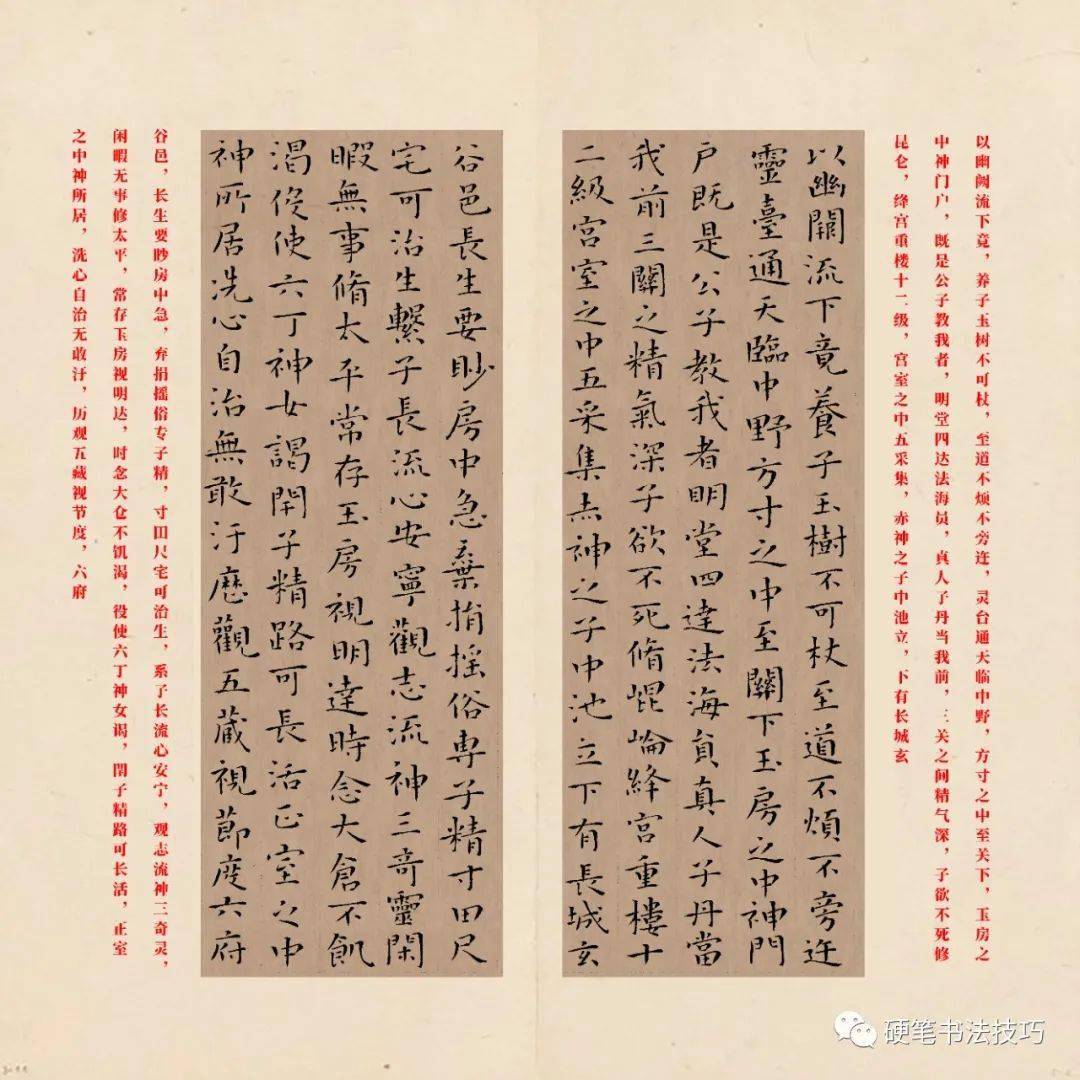 以幽阙流下竟，养子玉树不可杖，至道不烦不旁迕，灵台通天临中野，方寸之中至关下，玉房之
中神门户，既是公子教我者，明堂四达法海员，真人子丹当我前，三关之间精气深，子欲不死修
昆仑，绛宫重楼十二级，宫室之中五采集，赤神之子中池立，下有长城玄
以幽關流下竟養子玉樹不可杖至道不煩不旁迕
靈臺通天臨中野方寸之中至關下玉房之中神門
戶既是公子教我者明堂四達法海員真人子丹當
我前三關之精氣深子欲不死脩崐崘絳宮重樓十
二級宮室之中五采集赤神之子中池立下有長城玄
谷邑長生要眇房中急棄捐搖俗專子精寸田尺
宅可治生繫子長流心安寧觀志流神三奇靈閑
暇無事脩太平常存玉房視明達時念大倉不飢
渴役使六丁神女謁閇子精路可長活正室之中
神所居洗心自治無敢汙歷觀五藏視節度六府
谷邑，长生要眇房中急，弃捐摇俗专子精，寸田尺宅可治生，系子长流心安宁，观志流神三奇灵，
闲暇无事修太平，常存玉房视明达，时念大仓不饥渴，役使六丁神女谒，閇子精路可长活，正室
之中神所居，洗心自治无敢汙，历观五藏视节度，六府
硬笔书法技巧